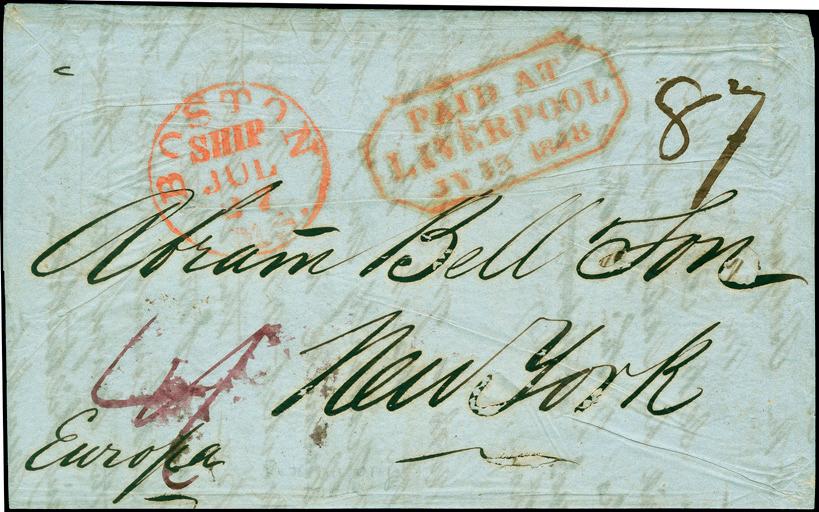 BOSTON
SHIP
JUL
27
MS.
PAID AT
LIVERPOOL
JY 15 1848
87
Abram Bell Son
New York
Europa